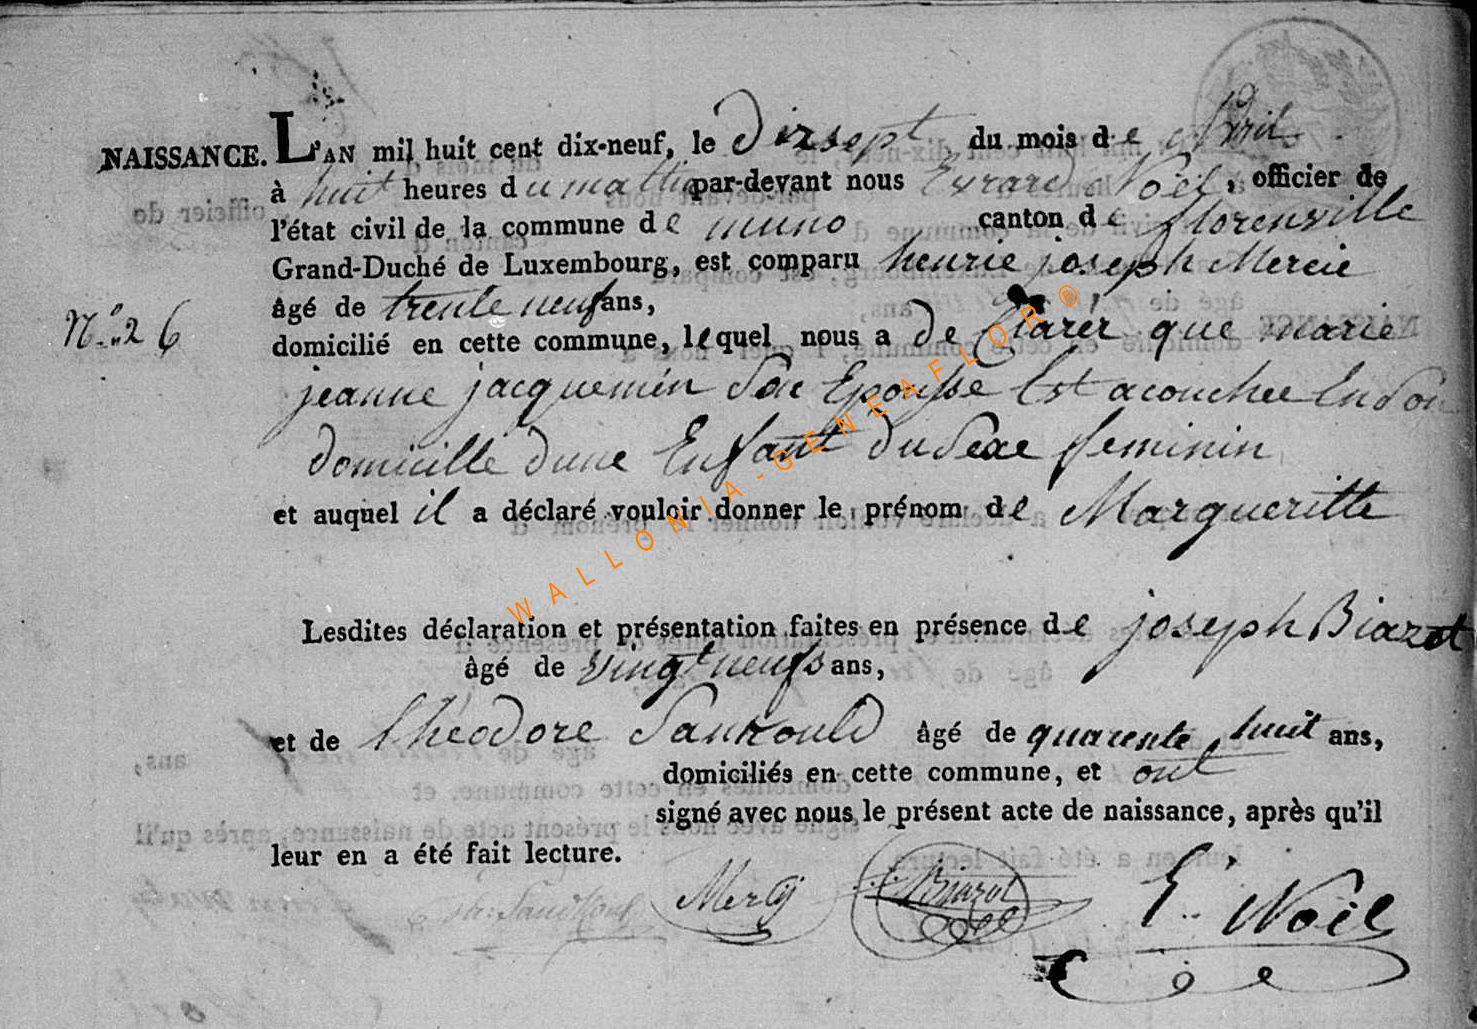 NAISSANCE. L'AN mil huit cent dix-neuf, le dixsept du mois de avril
à huit heures du matin par-devant nous Evrard Noël, officier de
l'état civil de la commune de muno canton de florenville
Grand-Duché de Luxembourg, est comparu henrie joseph Mercie
âgé de trente neuf ans,
N.º 26
domicilié en cette commune, lequel nous a de Clarér que marie
jeanne jacquemin Son Epousse Est acouchee En Son
domicille dune Enfant du Sexe feminin
et auquel il a déclaré vouloir donner le prénom de Margueritte
Lesdites déclaration et présentation faites en présence de joseph Biazot
âgé de vingt neufs ans,
et de théodore Sankould âgé de quarente huit ans,
domiciliés en cette commune, et ont
signé avec nous le présent acte de naissance, après qu'il
leur en a été fait lecture.
Mercy Biazot E. Noël
WALLONIA-GENEAFLOR®